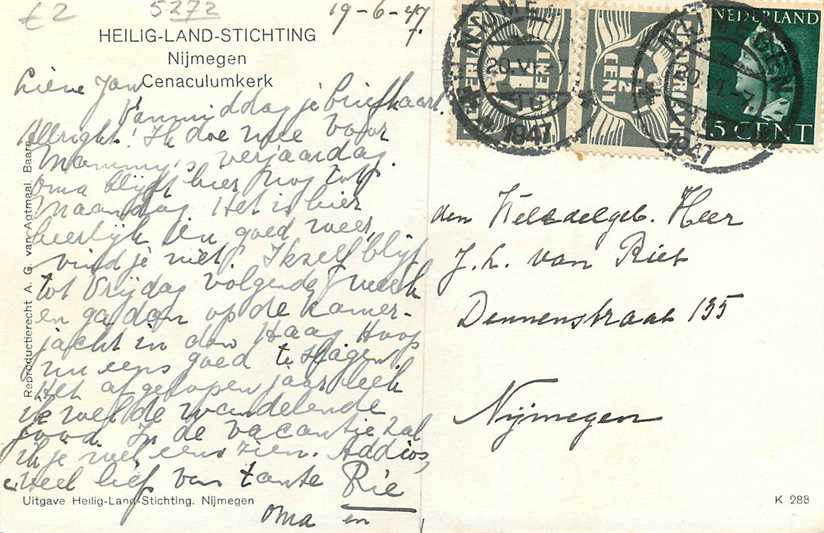 £2
5272
19-6-47.
HEILIG-LAND-STICHTING
Nijmegen
Cenaculumkerk
Lieve Jan
Vanmiddag je briefkaart.
Allright! Ik doe mee voor
Mammy's verjaardag.
Oma blijft hier nog tot
Maandag. Het is hier
heerlijk. En goed weer,
vind je niet? Ikzelf blijf
tot Vrijdag volgende week
en ga dan op de kamer-
jacht in den Haag. Hoop
nu eens goed te slagen.
Het afgelopen jaar leek
ik wel de wandelende
jood. In de vacantie zal
ik je wel eens zien. Addios,
veel liefs van tante Rie
Oma en
Reproductierecht A. G. van Agtmaal, Baarn
Uitgave Heilig-Land-Stichting. Nijmegen
K 288
1½
CENT
1½
CENT
NEDERLAND
5 CENT
NIJMEGEN
20.VI.47
1947
NIJMEGEN
1947
den Weledelgeb. Heer
J. L. van Riet
Dennenstraat 135
Nijmegen